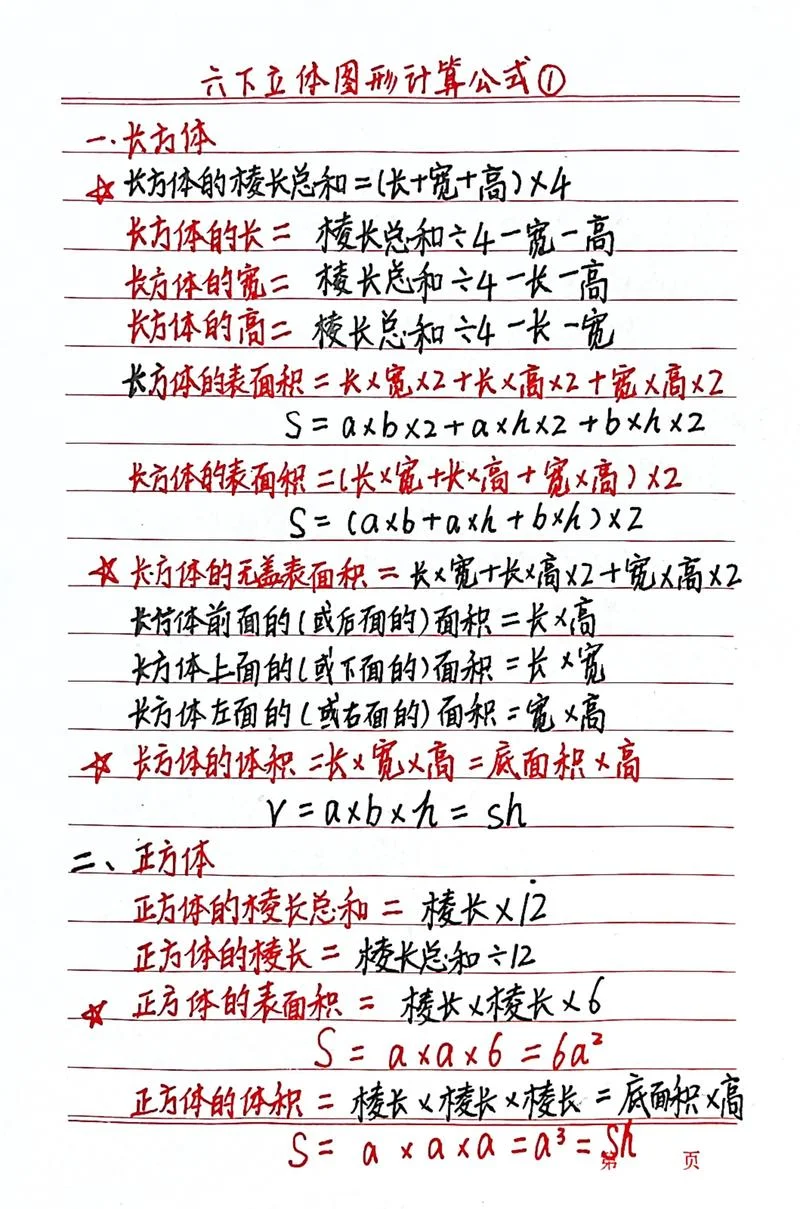 六下立体图形计算公式①
一.长方体
☆长方体的棱长总和=(长+宽+高)×4
长方体的长= 棱长总和÷4-宽-高
长方体的宽= 棱长总和÷4-长-高
长方体的高= 棱长总和÷4-长-宽
长方体的表面积=长×宽×2+长×高×2+宽×高×2
S=a×b×2+a×h×2+b×h×2
长方体的表面积=(长×宽+长×高+宽×高)×2
S=(a×b+a×h+b×h)×2
☆长方体的无盖表面积=长×宽+长×高×2+宽×高×2
长方体前面的(或后面的)面积=长×高
长方体上面的(或下面的)面积=长×宽
长方体左面的(或右面的)面积=宽×高
☆长方体的体积=长×宽×高=底面积×高
V=a×b×h=sh
二、正方体
正方体的棱长总和= 棱长×12
正方体的棱长= 棱长总和÷12
☆正方体的表面积= 棱长×棱长×6
S=a×a×6=6a²
正方体的体积=棱长×棱长×棱长=底面积×高
S=a×a×a=a³=Sh
第 页